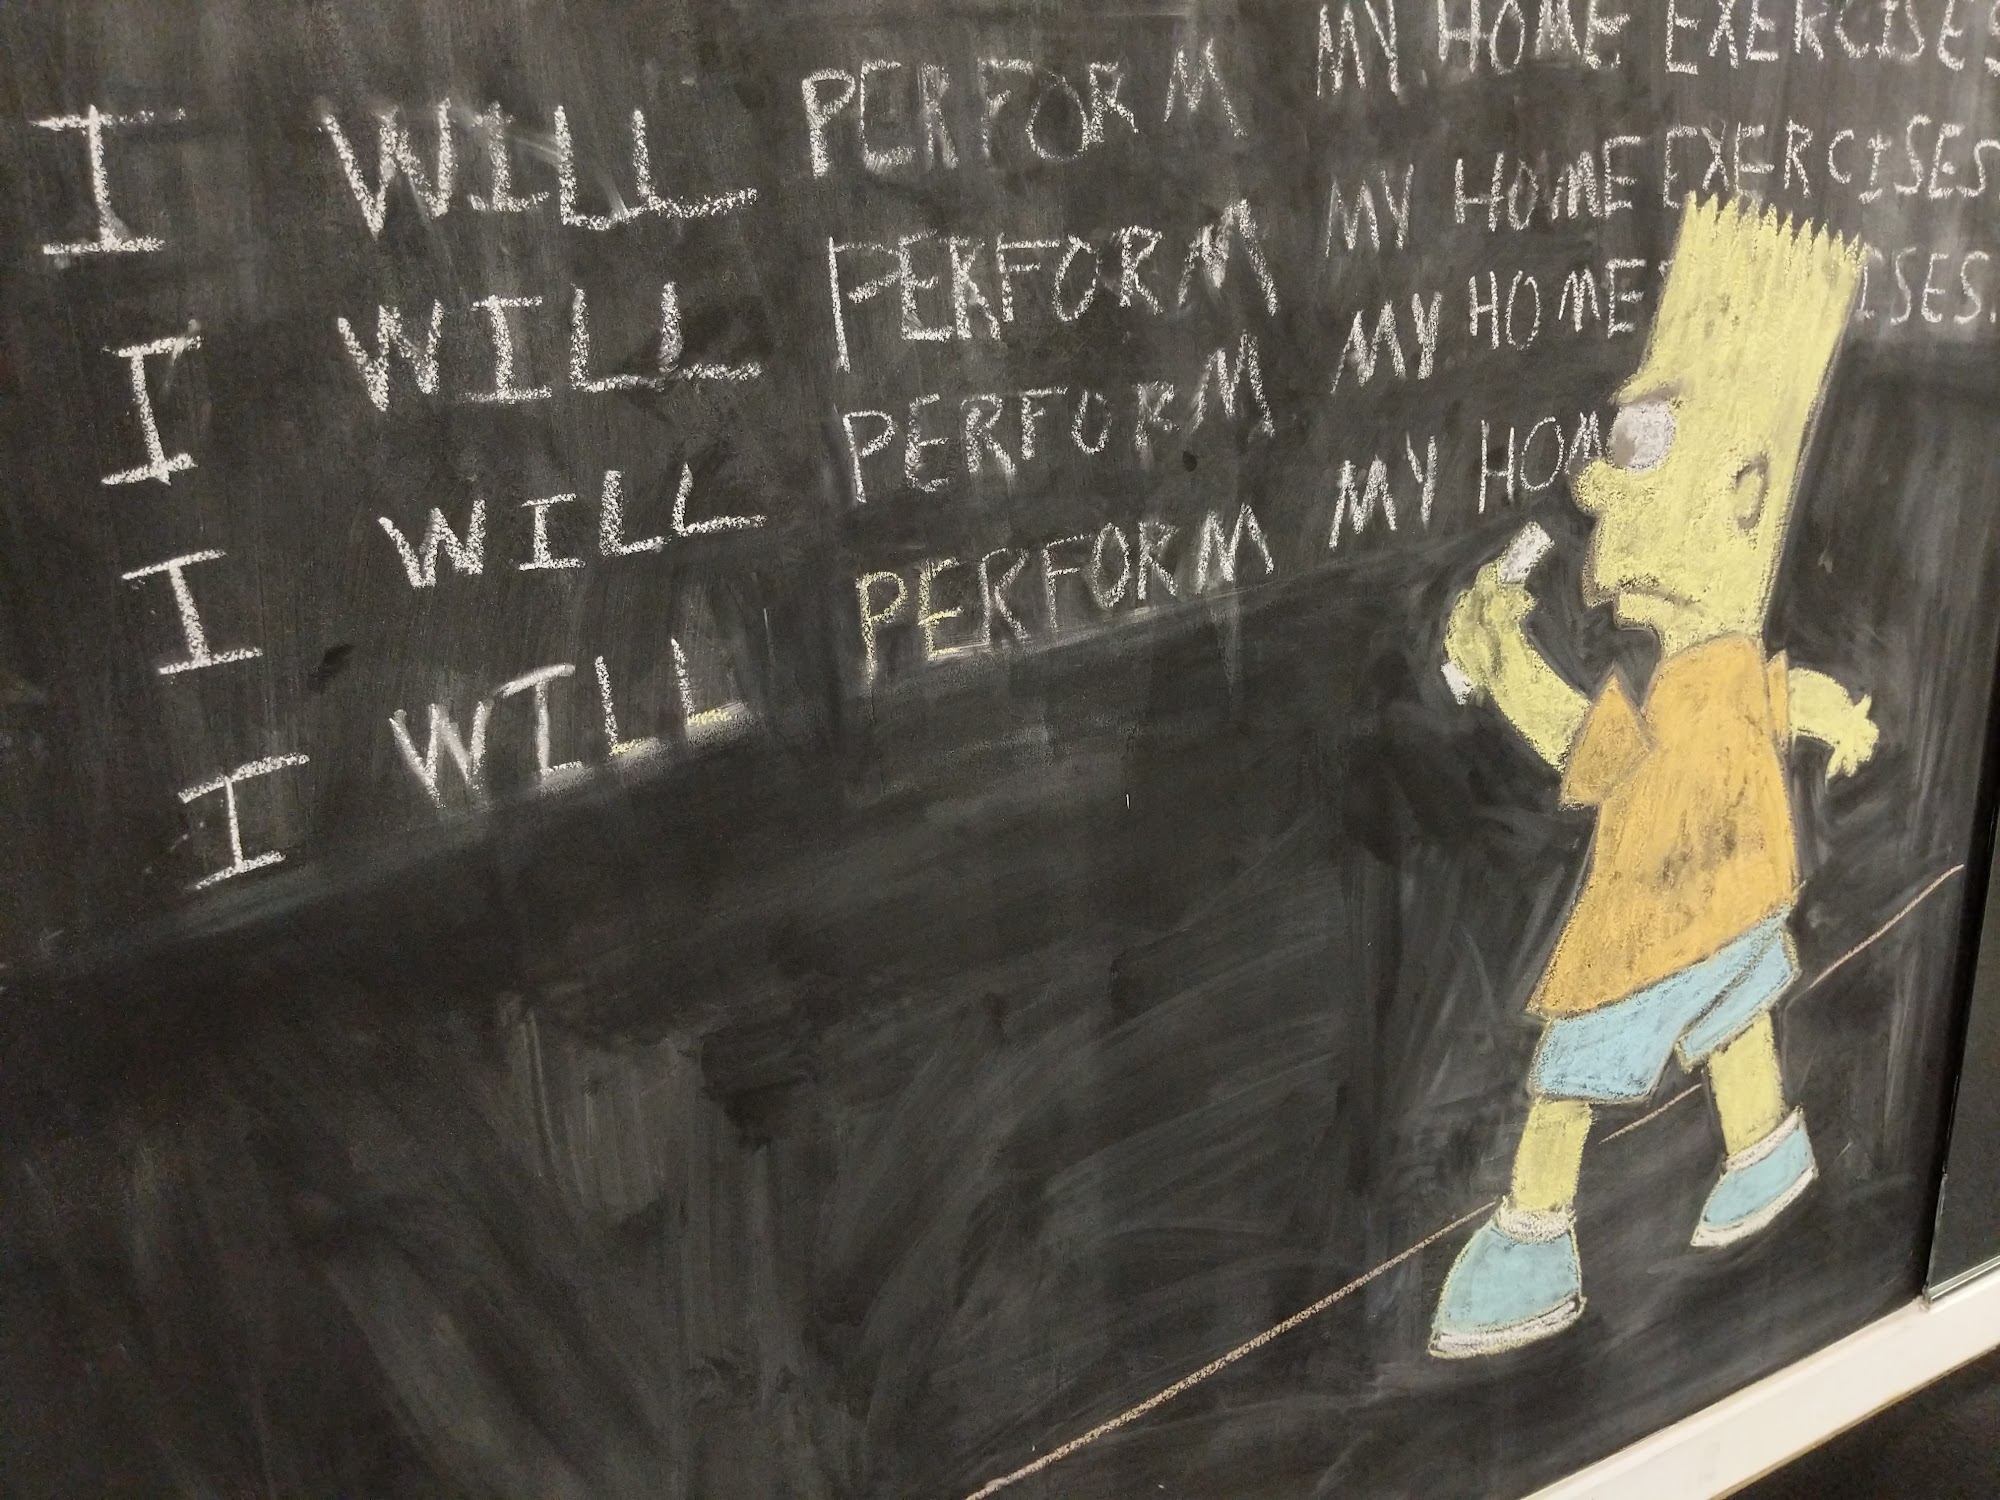 I WILL PERFORM MY HOME EXERCISES
I WILL PERFORM MY HOME EXERCISES.
I WILL PERFORM MY HOME ISES.
I WILL PERFORM MY HOM